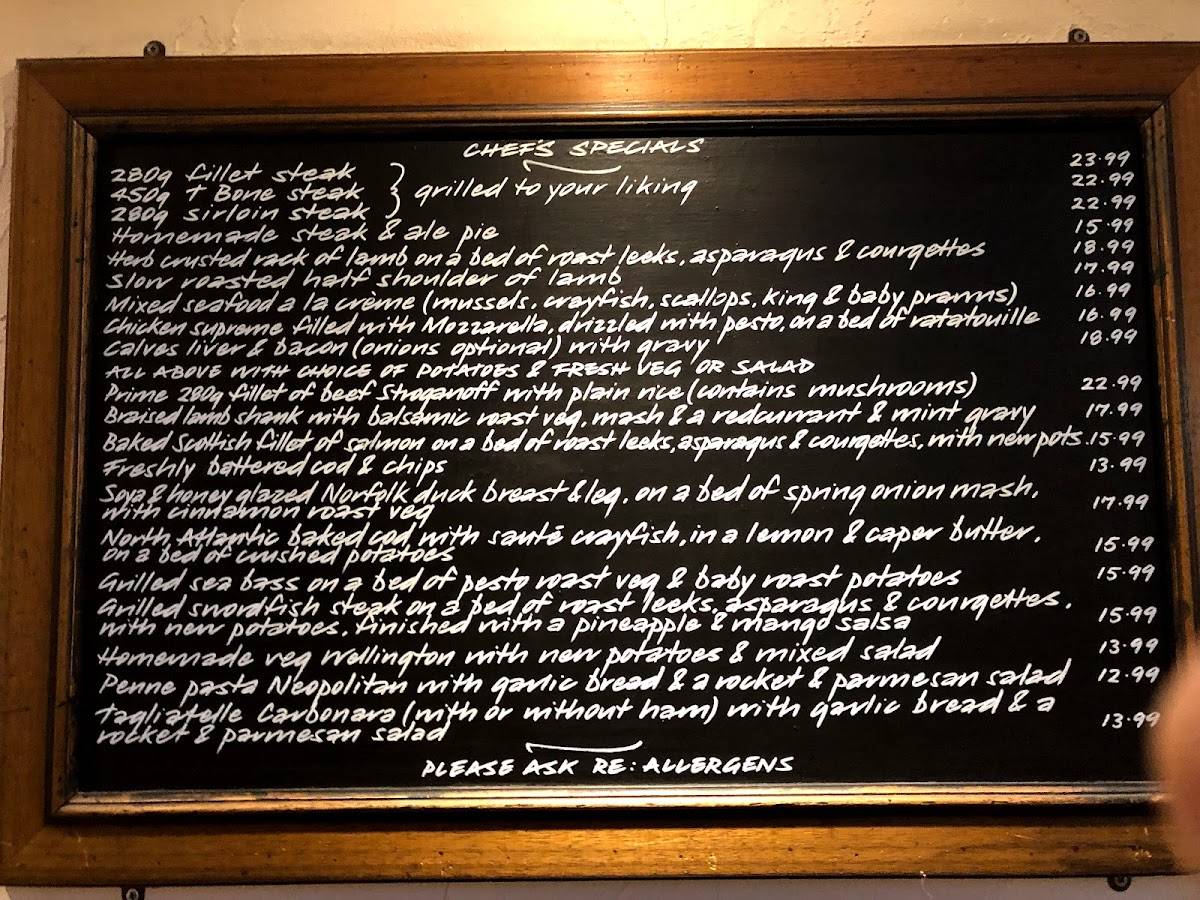 CHEF'S SPECIALS
280g fillet steak 23.99
450g T Bone steak } grilled to your liking 22.99
280g sirloin steak 22.99
Homemade steak & ale pie 15.99
Herb crusted rack of lamb on a bed of roast leeks, asparagus & courgettes 18.99
Slow roasted half shoulder of lamb 17.99
Mixed seafood a la crème (mussels, crayfish, scallops, king & baby prawns) 16.99
Chicken supreme filled with Mozzarella, drizzled with pesto, on a bed of ratatouille 16.99
Calves liver & bacon (onions optional) with gravy 18.99
ALL ABOVE WITH CHOICE OF POTATOES & FRESH VEG OR SALAD
Prime 280g fillet of beef Stroganoff with plain rice (contains mushrooms) 22.99
Braised lamb shank with balsamic roast veg, mash & a redcurrant & mint gravy 17.99
Baked Scottish fillet of salmon on a bed of roast leeks, asparagus & courgettes, with new pots. 15.99
Freshly battered cod & chips 13.99
Soya & honey glazed Norfolk duck breast & leg, on a bed of spring onion mash,
with cinnamon roast veg 17.99
North Atlantic baked cod with sauté crayfish, in a lemon & caper butter,
on a bed of crushed potatoes 15.99
Grilled sea bass on a bed of pesto roast veg & baby roast potatoes 15.99
Grilled swordfish steak on a bed of roast leeks, asparagus & courgettes,
with new potatoes, finished with a pineapple & mango salsa 15.99
Homemade veg Wellington with new potatoes & mixed salad 13.99
Penne pasta Neopolitan with garlic bread & a rocket & parmesan salad 12.99
Tagliatelle Carbonara (with or without ham) with garlic bread & a
rocket & parmesan salad 13.99
PLEASE ASK RE: ALLERGENS